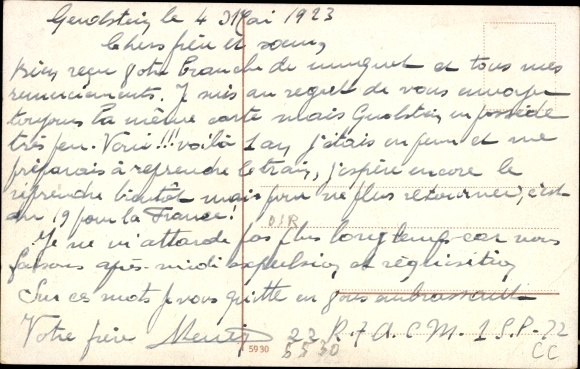 Gerolstein, le 4 Mai 1923
Chers frère et sœur,
Bien reçu votre branche de muguet et tous mes
remerciements. Je suis au regret de vous envoyer
toujours la même carte mais Gerolstein en possède
très peu. Voui !!! voilà 1 an, j'étais en perm et me
préparais à reprendre le train, j'espère encore le
reprendre bientôt mais pour ne plus retourner, c'est
du 19 pour la France !
Je ne m'attarde pas plus longtemps car nous
faisons après-midi expulsion et réquisition
Sur ces mots je vous quitte en vous embrassant
Votre frère
22 R.F.A. C M. 1 S.P. 22
5930
5530
DSR
CC